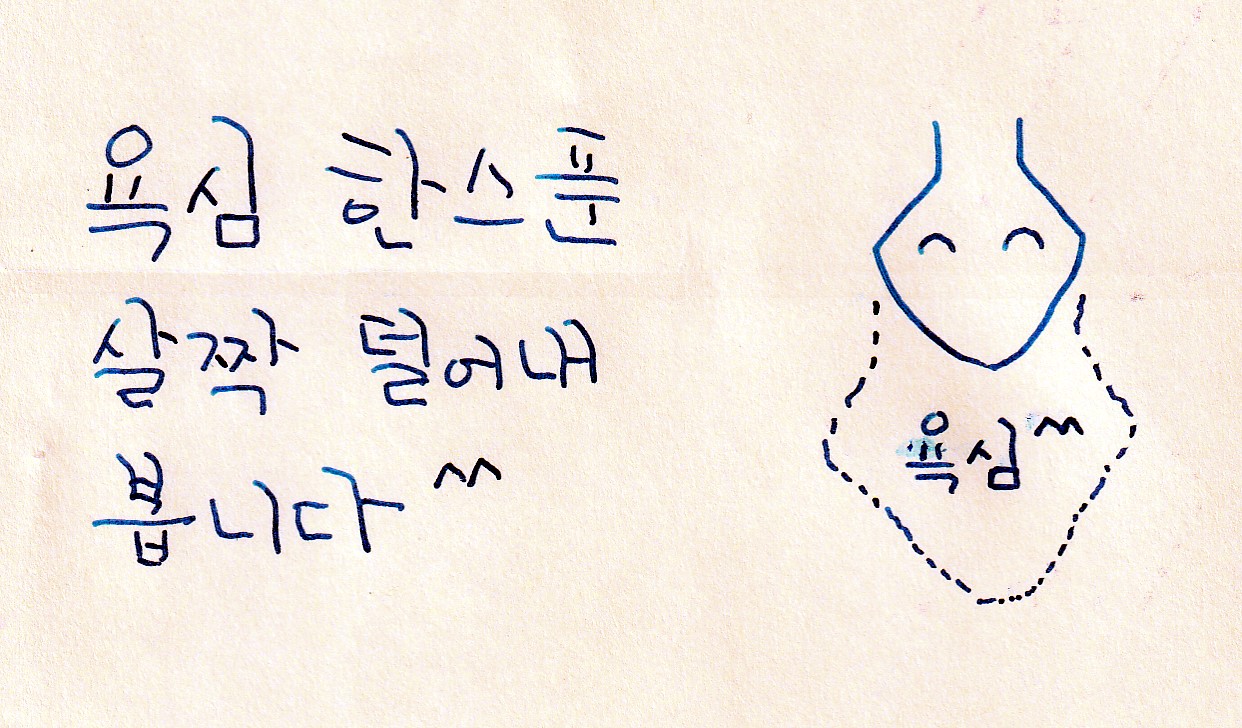 욕심 한스푼
살짝 털어내
봅니다 ^^
욕심 ^^